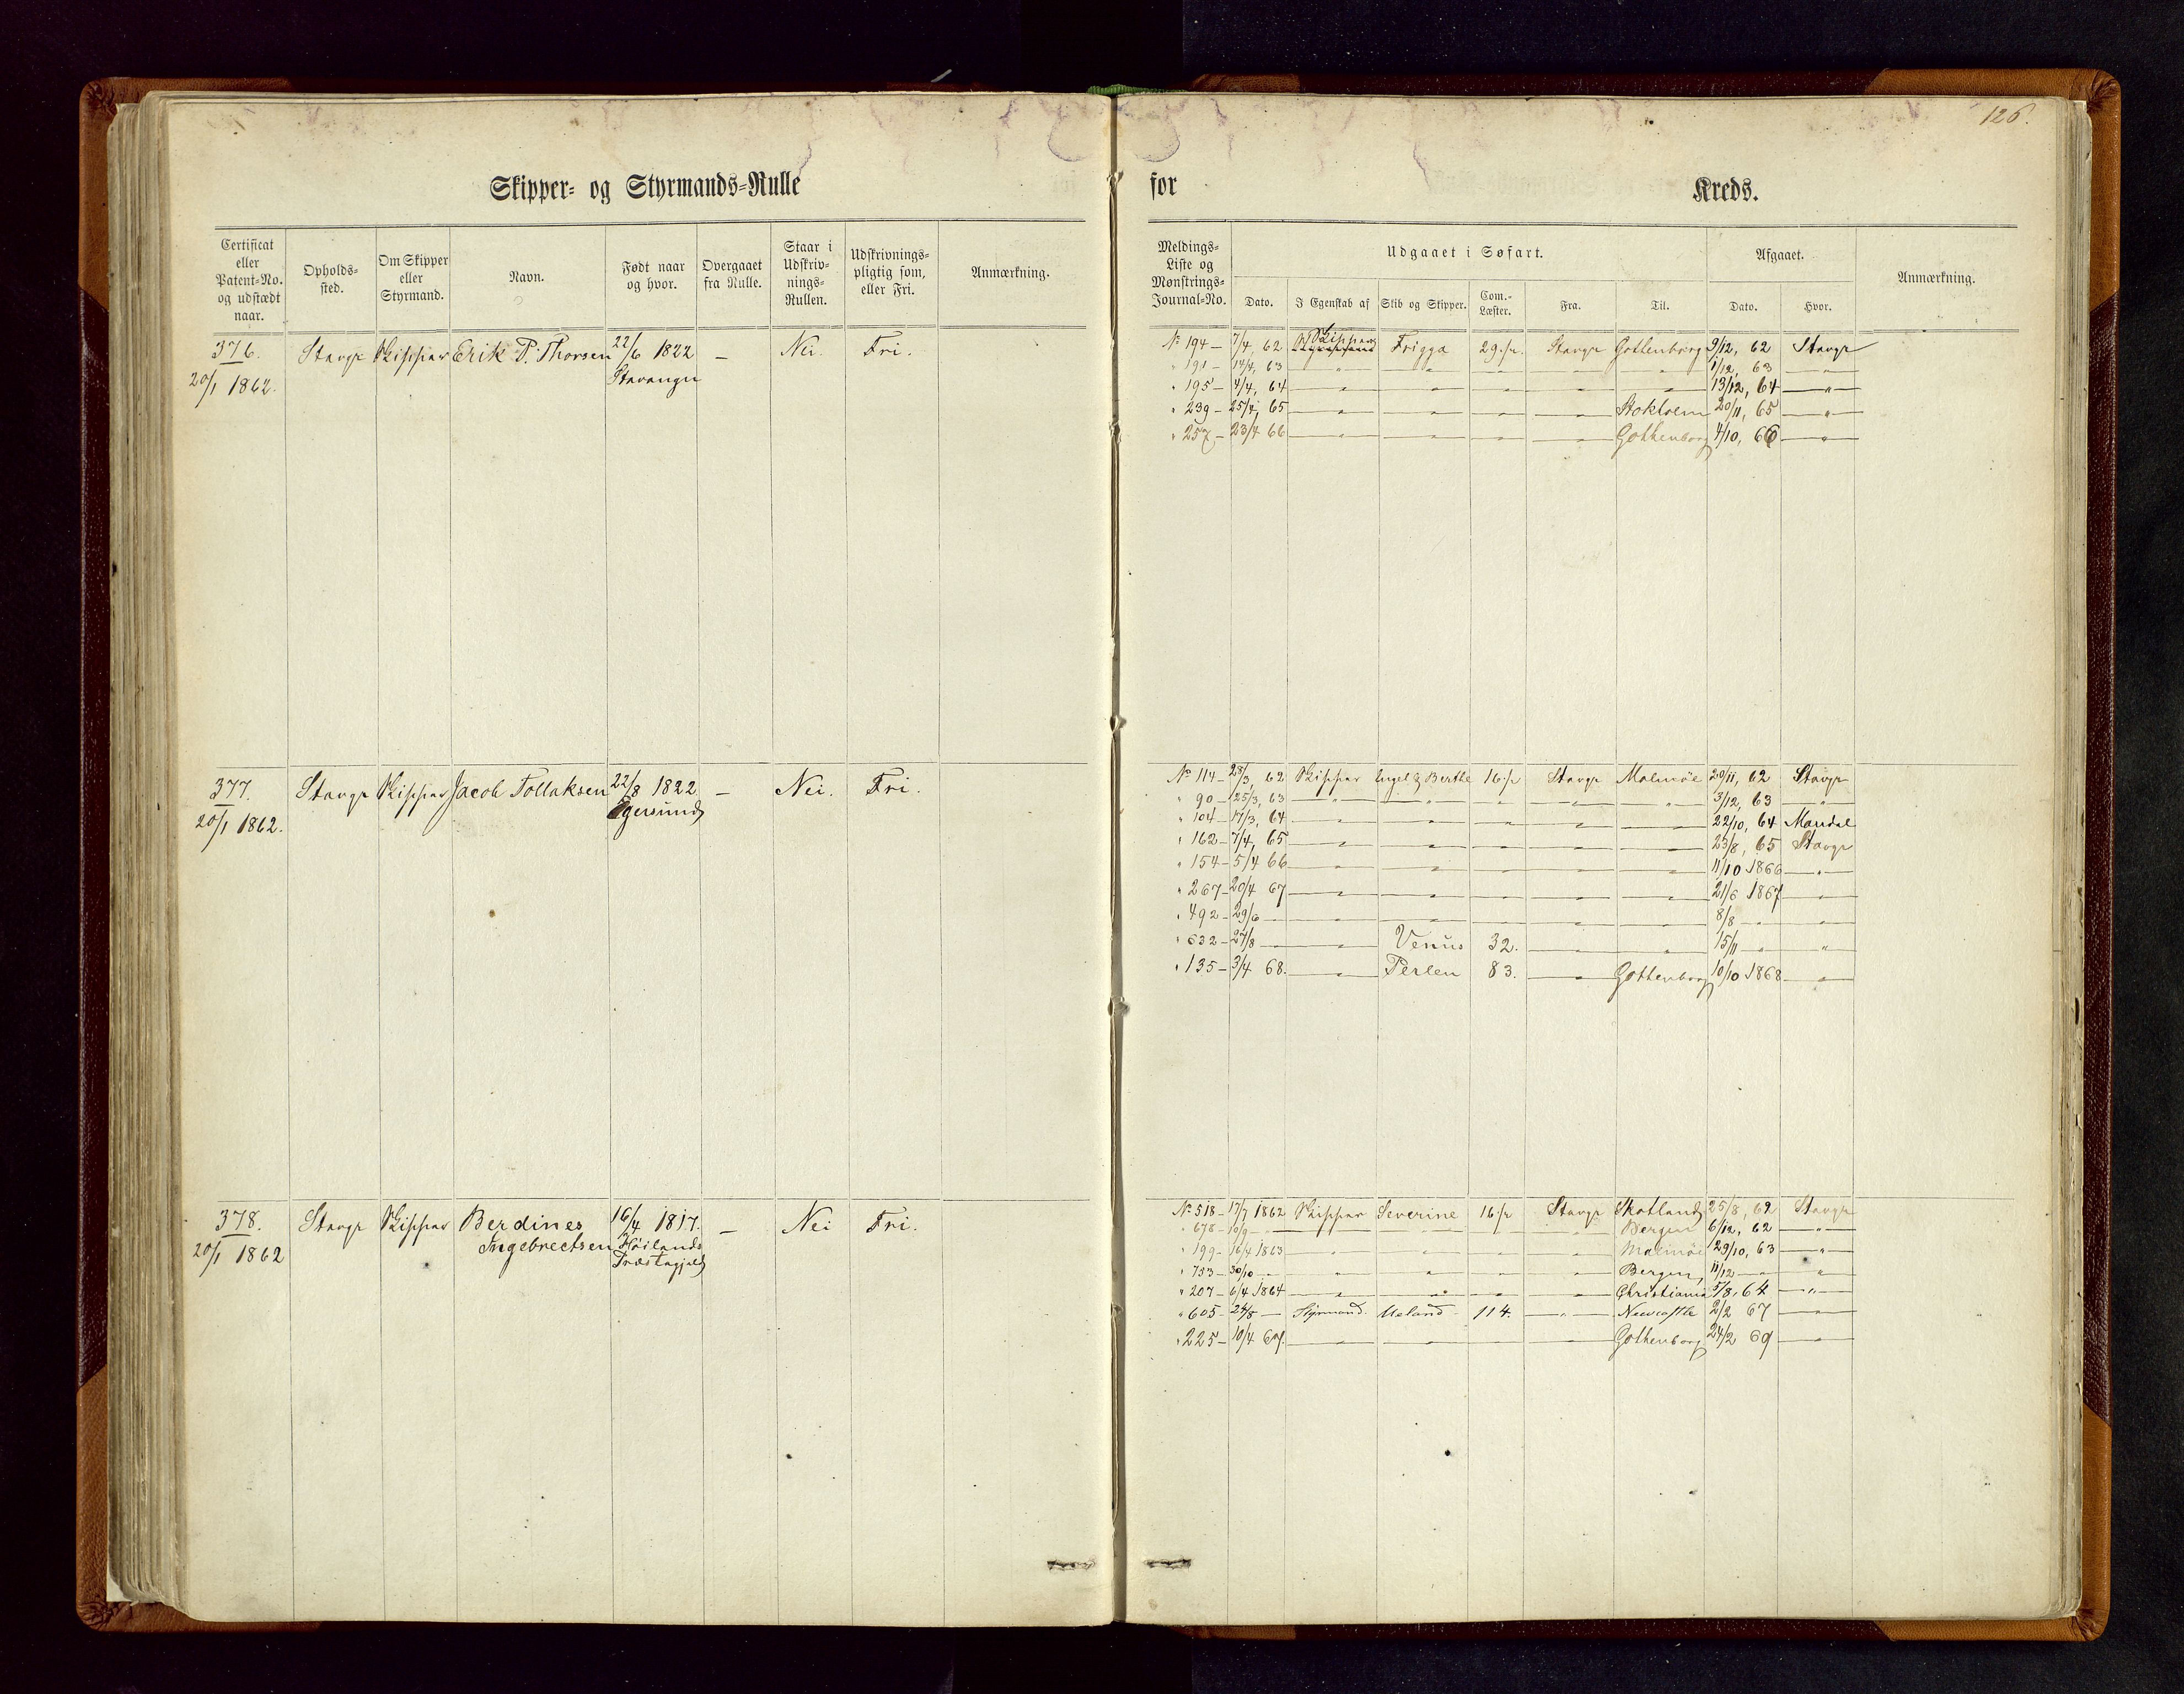 126.
Skipper- og Styrmands-Rulle for Kreds.
Certificat eller Patent-No. og udstædt naar. Opholds-sted. Om Skipper eller Styrmand. Navn. Født naar og hvor. Overgaaet fra Rulle. Staar i Udskriv-nings-Rullen. Udskrivnings-pligtig som, eller Fri. Anmærkning.
Meldings-Liste og Mønstrings-Journal-No. Udgaaet i Søfart. Afgaaet. Anmærkning.
Dato. I Egenskab af Skib og Skipper. Com.-Læster. Fra. Til. Dato. Hvor.
376. Stavgr Skipper Erik P. Thorsen 22/6 1822 — Nei. Fri.
20/1 1862. Stavanger
No 194 — 7/4, 62 Skipper Frigga 29.½. Stavgr Gottenborg 9/12, 62 Stavgr
" 191 — 14/4, 63 — " — — " — — " — — " — — " — 1/12, 63 — " —
" 195 — 4/4, 64 — " — — " — — " — — " — — " — 13/12, 64 — " —
" 239 — 25/4, 65 — " — — " — — " — — " — Stokholm 20/11, 65 — " —
" 257 — 23/4 66 — " — — " — — " — — " — Gothenborg 4/10, 66 — " —
377. Stavgr Skipper Jacob Tollaksen 22/8 1822 — Nei. Fri.
20/1 1862. Egersund
No 114 — 28/3, 62 Skipper Engel & Berthe 16.½ Stavgr Malmöe 20/11, 62 Stavgr
" 90 — 25/3, 63 — " — — " — — " — — " — — " — 3/12, 63 — " —
" 104 — 17/3, 64 — " — — " — — " — — " — — " — 22/10, 64 Mandal
" 162 — 7/4, 65 — " — — " — — " — — " — — " — 23/8, 65 Stavgr
" 154 — 5/4 66 — " — — " — — " — — " — — " — 11/10 1866 — " —
" 267 — 20/4 67 — " — — " — — " — — " — — " — 21/6 1867 — " —
" 492 — 29/6 — — " — — " — — " — — " — — " — 8/8 — " — — " —
" 632 — 27/8 — — " — Venus 32. — " — — " — 15/11 — " — — " —
" 135 — 3/4 68. — " — Perlen 83. — " — Gottenborg 10/10 1868 — " —
378. Stavgr Skipper Berdines 16/4 1817. — Nei Fri.
20/1 1862 Ingebrectsen Höilands
Præstegjeld
No 518 — 17/7 1862 Skipper Severine 16½ Stavgr Skotland 25/8, 62 Stavgr
" 678 — 10/9 — — " — — " — — " — — " — Bergen 6/12, 62 — " —
" 199 — 16/4 1863 — " — — " — — " — — " — Malmöe 29/10, 63 — " —
" 753 — 30/10 — — " — — " — — " — — " — Bergen, 11/12 — " — — " —
" 207 — 6/4 1864 — " — — " — — " — — " — Christiania 5/8, 64 — " —
" 605 — 24/8 — Styrmand. Ueland 114. — " — Newcastle 2/2 67 — " —
" 225 — 10/4 67. — " — — " — — " — — " — Gothenborg 24/2 69 — " —